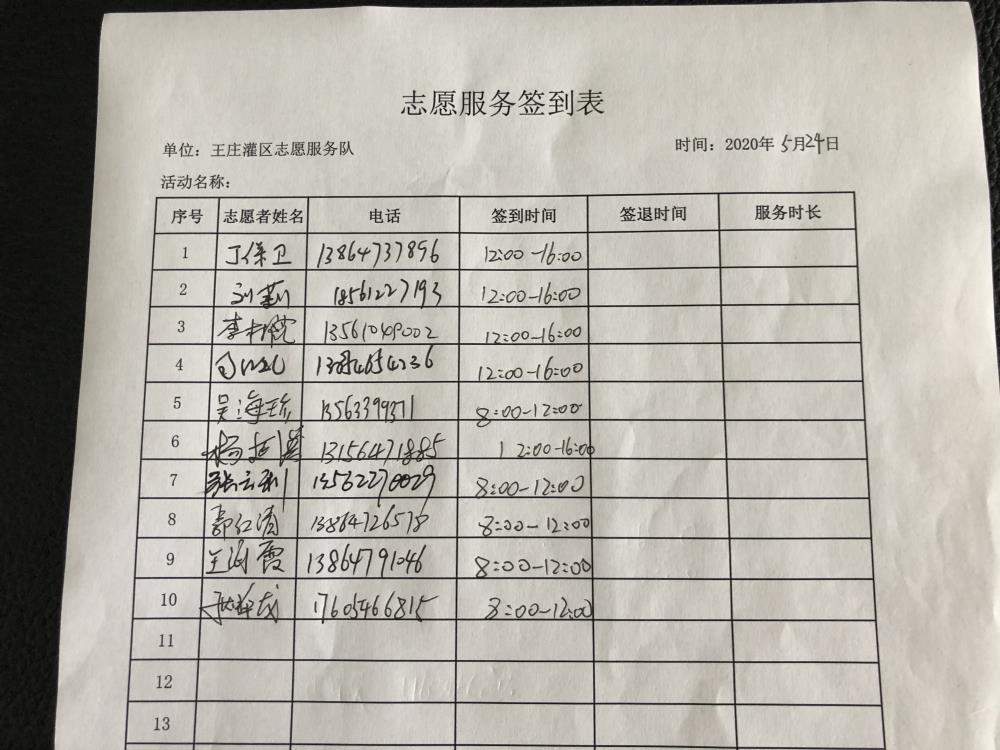 志愿服务签到表
单位：王庄灌区志愿服务队 时间：2020年5月24日
活动名称：
序号 志愿者姓名 电话 签到时间 签退时间 服务时长
1 丁保卫 13864737896 12:00-16:00
2 刘莉 18561227193 12:00-16:00
3 李 13561049002 12:00-16:00
4 12:00-16:00
5 吴海珍 13563399371 8:00-12:00
6 杨 13156471885 12:00-16:00
7 张云利 13562270029 8:00-12:00
8 郭红清 13864726578 8:00-12:00
9 王海霞 13864791046 8:00-12:00
10 17605466815 8:00-12:00
11
12
13